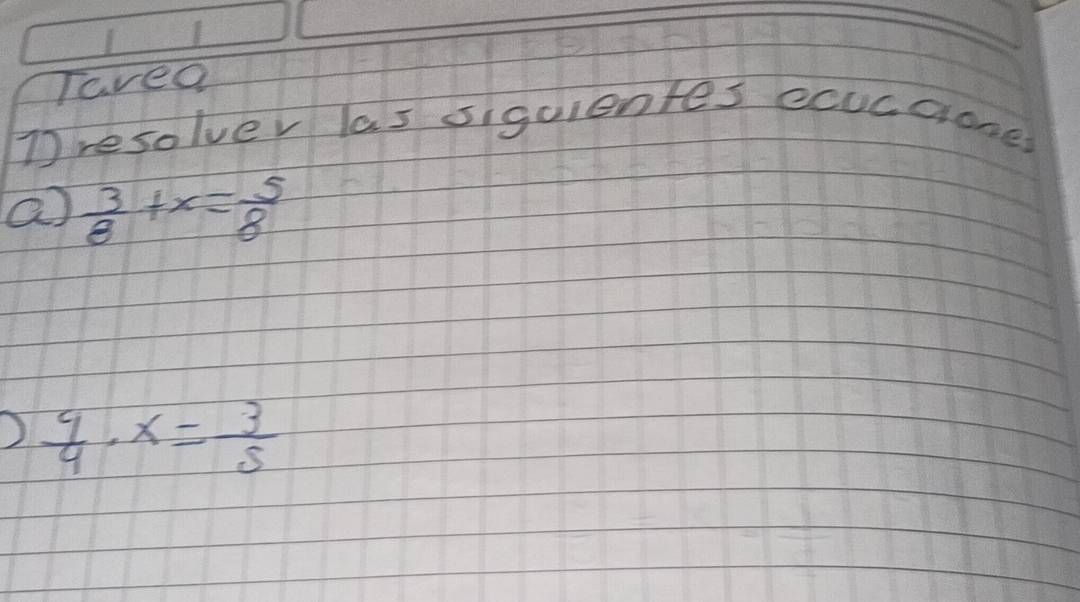 Tarea
1) resolver las siguientes ecucaiones
a) 3/8 + x = 5/8
) 9/4 . x = 3/5